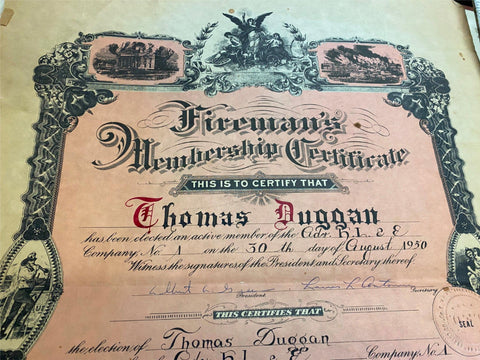 Fireman's
Membership Certificate
THIS IS TO CERTIFY THAT
Thomas Duggan
has been elected an active member of the H. L. & E
Company, No. 1 on the 30 th day of August 1930
Witness the signatures of the President and Secretary thereof
President Secretary
THIS CERTIFIES THAT
the election of Thomas Duggan
H. L. & E Company, No. 1
SEAL